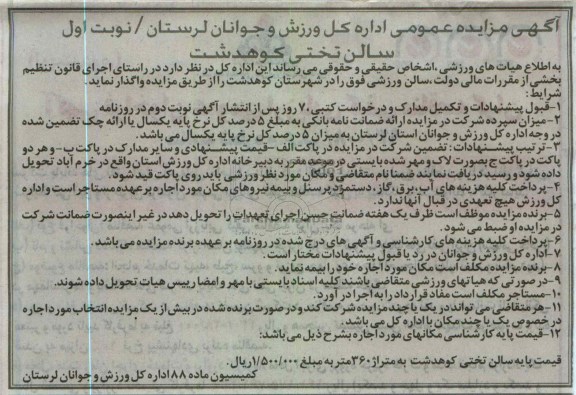 آگهی مزایده عمومی اداره کل ورزش و جوانان لرستان / نوبت اول
سالن تختی کوهدشت
به اطلاع هیات های ورزشی ،اشخاص حقیقی و حقوقی می رساند این اداره کل در نظر دارد در راستای اجرای قانون تنظیم
بخشی از مقررات مالی دولت ،سالن ورزشی فوق را در شهرستان کوهدشت را از طریق مزایده واگذار نماید.
شرایط:
۱-قبول پیشنهادات و تکمیل مدارک و درخواست کتبی ۷۰ روز پس از انتشار آگهی نوبت دوم در روزنامه
۲-میزان سپرده شرکت در مزایده ارائه ضمانت نامه بانکی به مبلغ ۵ درصد کل نرخ پایه یکسال یا ارائه چک تضمین شده
در وجه اداره کل ورزش و جوانان استان لرستان به میزان ۵ درصد کل نرخ پایه یکسال می باشد.
۳-ترتیب پیشنهادات: تضمین شرکت در مزایده در پاکت الف-قیمت پیشنهادی و سایر مدارک در پاکت ب-و هر دو
پاکت در پاکت ج بصورت لاک و مهر شده بایستی در موعد مقرر به دبیرخانه اداره کل ورزش استان واقع در خرم آباد تحویل
داده شود و رسید دریافت نمایند ضمنا نام متقاضی و مکان مورد نظر ورزشی باید روی پاکت قید شود.
۴-پرداخت کلیه هزینه های آب،برق،گاز،دستمزد پرسنل و بیمه نیروهای مکان مورد اجاره بر عهده مستاجر است و اداره
کل ورزش هیچ تعهدی در قبال آنها ندارد.
۵-برنده مزایده موظف است ظرف یک هفته ضمانت حسن اجرای تعهدات را تحویل دهد در غیر اینصورت ضمانت شرکت
در مزایده او ضبط می شود.
۶-پرداخت کلیه هزینه های کارشناسی و آگهی های درج شده در روزنامه بر عهده برنده مزایده می باشد.
۷-اداره کل ورزش و جوانان در رد یا قبول پیشنهادات مختار است.
۸-برنده مزایده مکلف است مکان مورد اجاره خود را بیمه نماید.
۹-در صورتی که هیاتهای ورزشی متقاضی باشند کلیه اسناد بایستی با مهر و امضا رییس هیات تحویل داده شوند.
۱۰-مستاجر مکلف است مفاد قرارداد را به اجرا در آورد.
۱۱-هر متقاضی می تواند در یک یا چند مزایده شرکت کند و در صورت برنده شدن در بیش از یک مزایده انتخاب مورد اجاره
در خصوص یک یا چند مکان با اداره کل می باشد.
۱۲-قیمت پایه کارشناسی مکانهای مورد اجاره بشرح ذیل می باشد.
قیمت پایه سالن تختی کوهدشت به متراژ ۳۶۰ متر به مبلغ ۱/۵۰۰/۰۰۰ ریال.
کمیسیون ماده ۸۸ اداره کل ورزش و جوانان لرستان